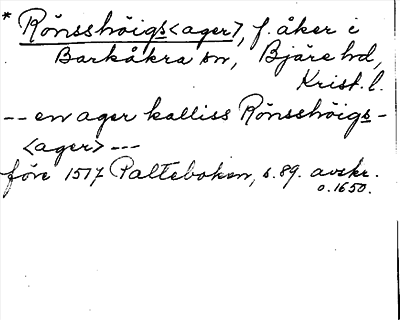 * Rönsshöigs<ager>, f. åker i
Barkåkra sn, Bjäre hd,
Krist. l.
-- en ager kalliss Rönsshöigs-
<ager> ---
före 1517 Palteboken, s. 89. avskr.
o. 1650.